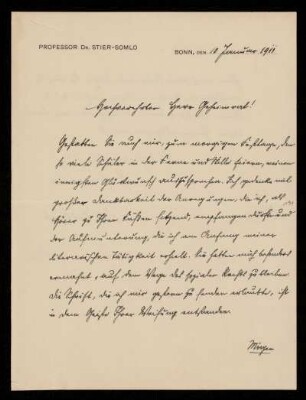 PROFESSOR Dr. STIER-SOMLO BONN, DEN 10 Januar 1911
Hochverehrter Herr Geheimrat!
Gestatten Sie auch mir, zum morgigen Festtage, den
so viele Schüler in der Ferne und Nähe feiern, meinen
innigsten Glückwunsch auszusprechen. Ich gedenke mit
großer Dankbarkeit der Anregungen, die ich, als
Hörer zu Ihren Füßen sitzend, empfangen durfte und
der Aufmunterung, die ich am Anfang meiner
literarischen Tätigkeit erhielt. Sie hatten mich besonders
ermahnt, auf dem Wege des sozialen Rechts
die Schrift, die ich mir gestern zu senden erlaubte, ist
in dem Geiste Ihrer Weisung entstanden.